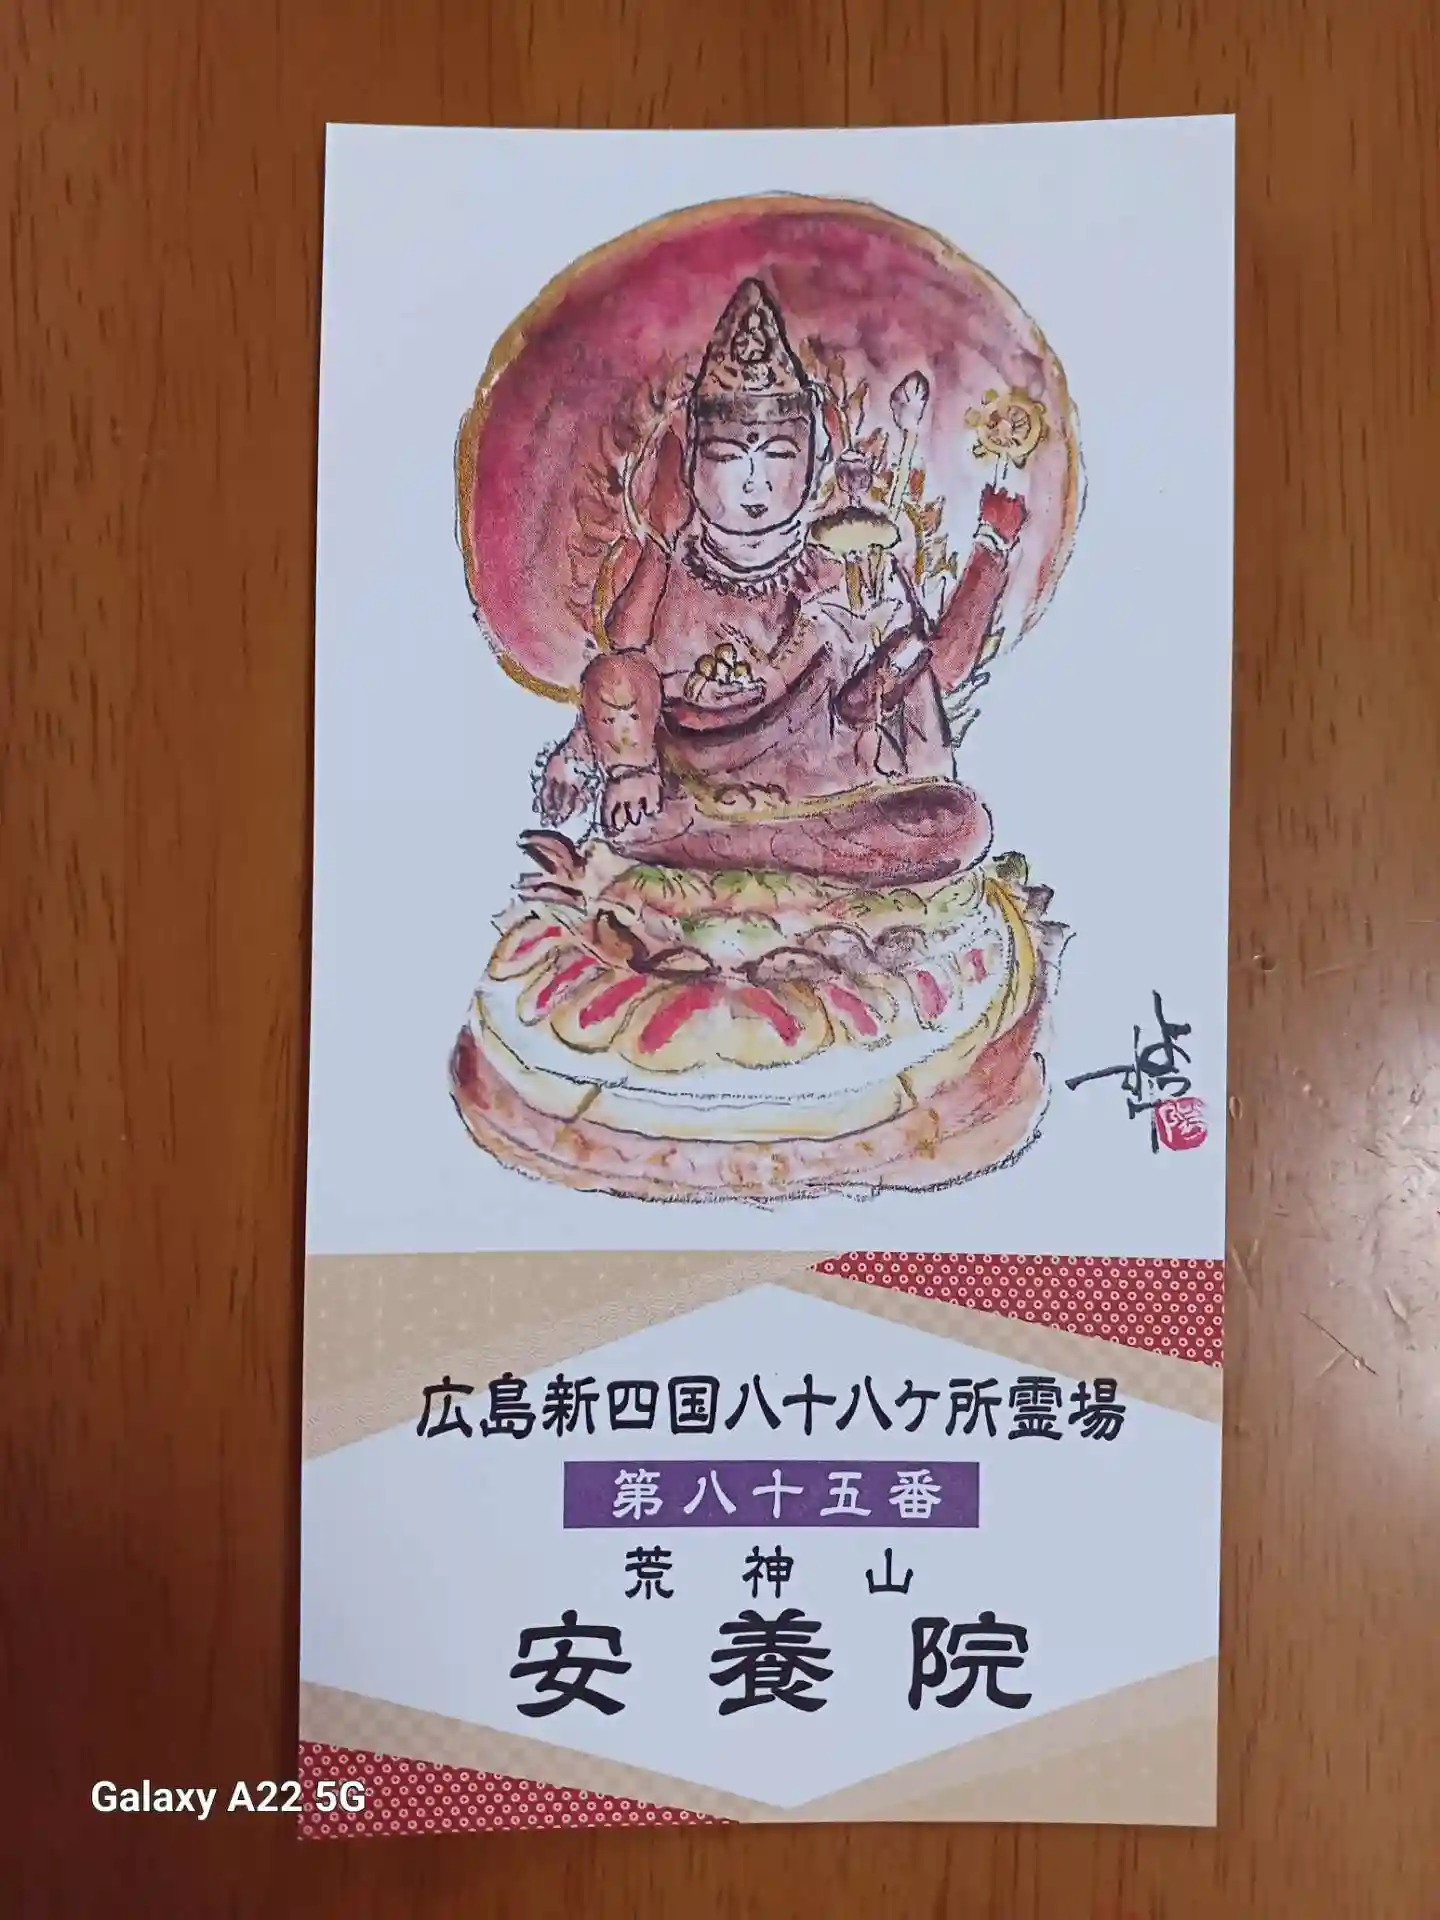 広島新四国八十八ケ所霊場
第八十五番
荒神山
安養院
Galaxy A22 5G